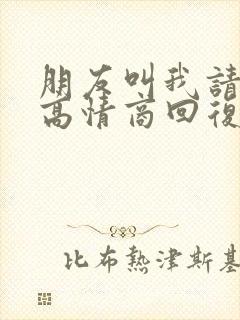 朋友叫我請
高情商回復
比布熱津斯基